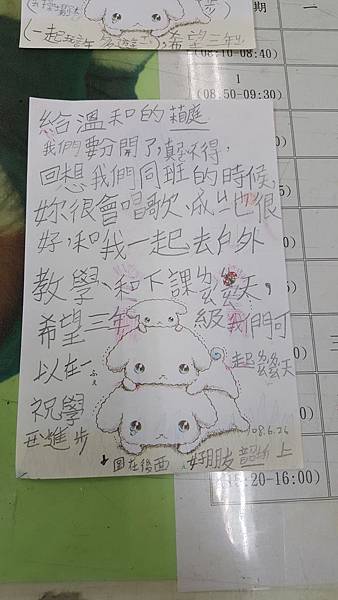 (一起許 希望三年
期 一
(08:10-08:40)
1
(08:50-09:30)
給溫和的萮庭
我們要分開了,真捨不得,
回想我們同班的時候,
妳很會唱歌、成ㄐㄧ也很
好,和我一起去戶外
教學、和下課ㄌㄧㄠˊ天,
希望三年 級我們可
以在一 起ㄌㄧㄠˊ天
祝學
業進步
108.6.26
圖在後面 好朋友 上
20-16:00)